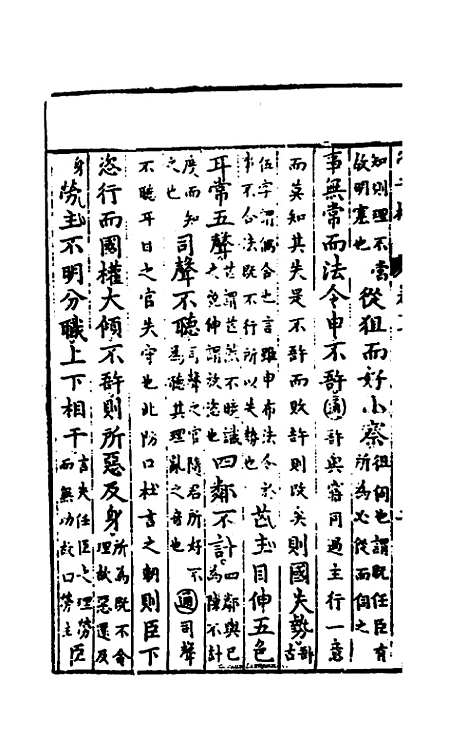 知則理不當故明塞也從狙而好小察狙伺也謂既任臣有所為必從而伺之
事無常而法令申不䚕通䚕與寤同過主行一意
而莫知其失是不䚕而敗䚕則改矣則國失勢䚕古
伍字謂偶合也言雖申布法令於事不合法既不行所以失勢也芒主目伸五色
耳常五聲芒謂芒然不曉識之貌伸謂放恣也四鄰不計四鄰與己為隣不計
度而知之也司聲不聽司聲之官隨君所好不為聽其理亂之音也通司聲
不聽耳目之官失守也北防口杜言之朝則臣下
恣行而國權大傾不䚕則所惡及身所為既不合理故惡還及
身勞主不明分職上下相干言失任臣之理勞臣而無功故曰勞主